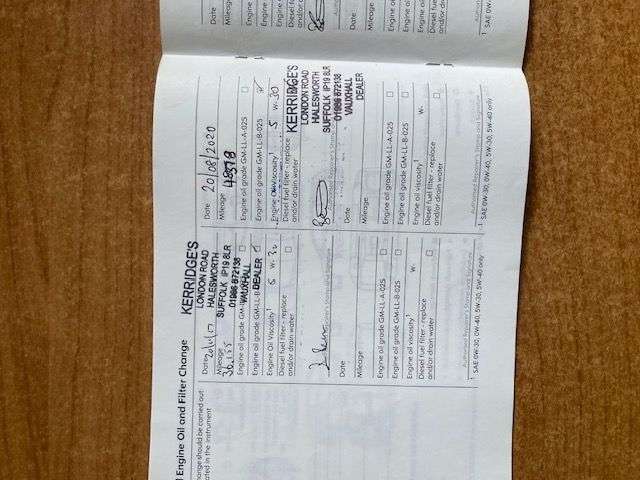 Engine Oil and Filter Change
change should be carried out
cated in the instrument
KERRIDGE'S
LONDON ROAD
HALESWORTH
SUFFOLK IP19 8LR
01986 872138
VAUXHALL
DEALER
Date
Mileage
Engine oil grade
Engine oil grade
Engine Oil Viscosity¹ 5 W- 30
Diesel fuel filter - replace
and/or drain water
Date
Mileage
Engine oil grade GM-LL-A-025
Engine oil grade GM-LL-B-025
Engine oil viscosity¹ W-
Diesel fuel filter - replace
and/or drain water
Authorised Repairer's Stamp and Signature
1 SAE 0W-30, 0W-40, 5W-30, 5W-40 only
Date 20/08/2020
Mileage 48578
Engine oil grade GM-LL-A-025
Engine oil grade GM-LL-B-025
Engine Oil Viscosity¹ 5 W-30
Diesel fuel filter - replace
and/or drain water
KERRIDGE'S
LONDON ROAD
HALESWORTH
SUFFOLK IP19 8LR
01986 872138
VAUXHALL
DEALER
Date
Mileage
Engine oil grade GM-LL-A-025
Engine oil grade GM-LL-B-025
Engine oil viscosity¹ W-
Diesel fuel filter - replace
and/or drain water
Authorised Repairer's Stamp and Signature
1 SAE 0W-30, 0W-40, 5W-30, 5W-40 only
Date
Mileage
Engine o
Engine o
Engine
Diesel fu
and/or dr
Mileage
Engine o
Engine o
Engine o
Diesel fue
and/or dr
1 SAE 0W-